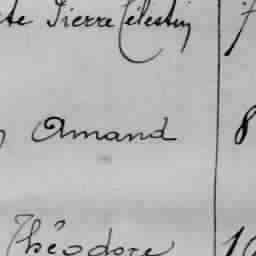 te Pierre Célestin 7
Amand 8
Théodore 10